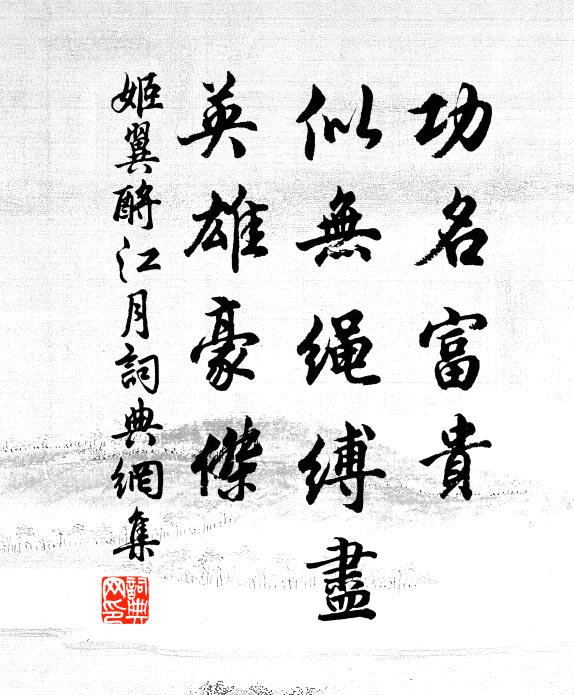 功名富貴
似無繩縛盡
英雄豪傑
姬翼酹江月詞典網集
詞典
网印